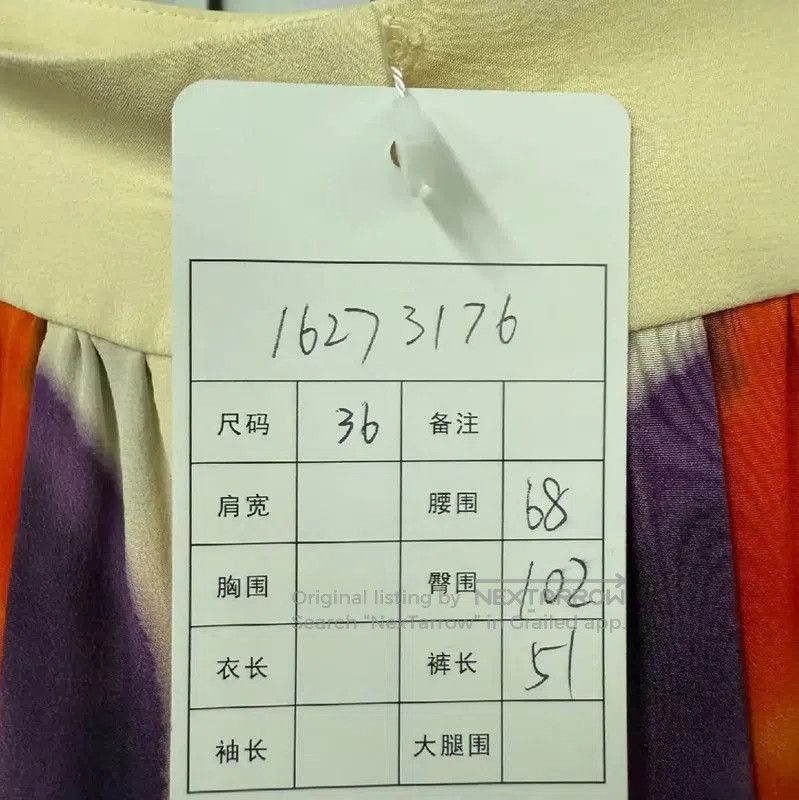 16273176
尺码 36 备注
肩宽 腰围 68
胸围 臀围 102
Original listing by NEXTARROW
Search "NexTarrow" in Grailed app.
衣长 裤长 51
袖长 大腿围